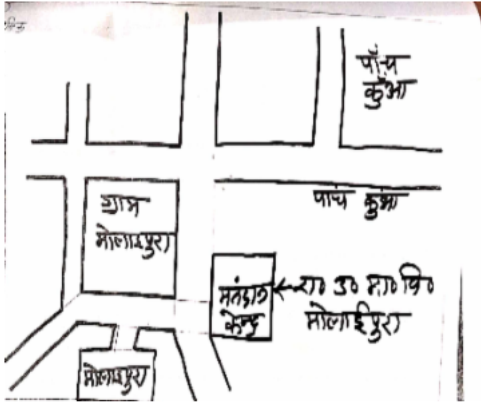 पाँच
कुँआ
पांच कुंआ
ग्राम
मोलाईपुरा
मतदान
केन्द्र
रा० उ० मा० वि०
मोलाईपुरा
मोलाईपुरा